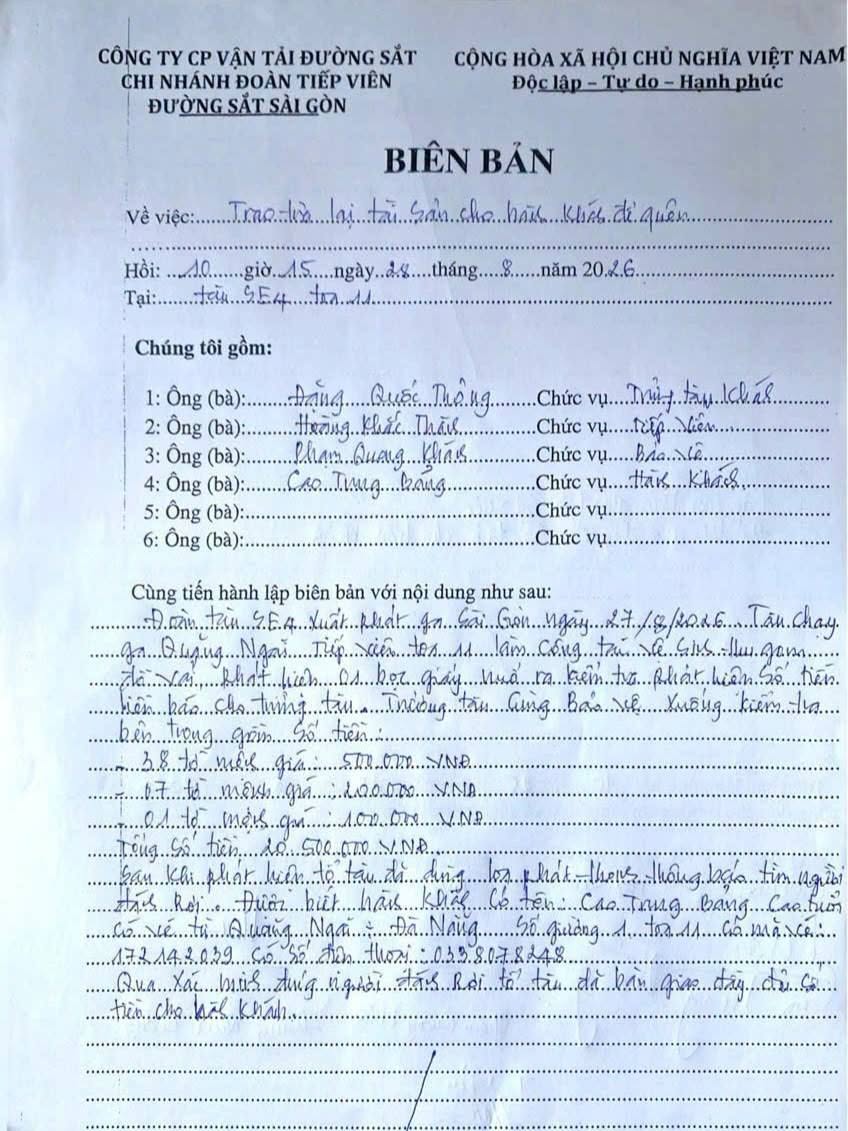 CÔNG TY CP VẬN TẢI ĐƯỜNG SẮT
CHI NHÁNH ĐOÀN TIẾP VIÊN
ĐƯỜNG SẮT SÀI GÒN
CỘNG HÒA XÃ HỘI CHỦ NGHĨA VIỆT NAM
Độc lập – Tự do – Hạnh phúc
BIÊN BẢN
Về việc: Trao trả lại tài sản cho hành khách để quên
Hồi: 10 giờ 15 ngày 28 tháng 8 năm 2026
Tại: tàu SE4 toa 11
Chúng tôi gồm:
1: Ông (bà): Đặng Quốc Thông Chức vụ Trưởng tàu khách
2: Ông (bà): Hoàng Khắc Thành Chức vụ Tiếp viên
3: Ông (bà): Phạm Quang Khánh Chức vụ Bảo vệ
4: Ông (bà): Cao Trung Bảng Chức vụ Hành khách
5: Ông (bà): Chức vụ
6: Ông (bà): Chức vụ
Cùng tiến hành lập biên bản với nội dung như sau:
Đoàn tàu SE4 xuất phát ga Sài Gòn ngày 27/8/2026. Tàu chạy
ga Quảng Ngãi Tiếp viên toa 11 làm công tác vệ sinh thu gom
đồ vải, phát hiện 01 bọc giấy mở ra kiểm tra phát hiện số tiền
liền báo cho trưởng tàu. Trưởng tàu cùng Bảo vệ xuống kiểm tra
bên trong gồm số tiền:
- 38 tờ mệnh giá: 500.000 VNĐ
- 07 tờ mệnh giá: 200.000 VNĐ
- 01 tờ mệnh giá: 100.000 VNĐ
Tổng số tiền 20.500.000 VNĐ
Sau khi phát hiện tổ tàu đã dùng loa phát thanh thông báo tìm người
đánh rơi. Được biết hành khách có tên: Cao Trung Bang Cao tuổi
có vé từ Quảng Ngãi ÷ Đà Nẵng số giường 1 toa 11 có mã vé:
172142039 có số điện thoại: 0338078248
Qua xác minh đúng người đánh rơi tổ tàu đã bàn giao đầy đủ số
tiền cho hành khách.